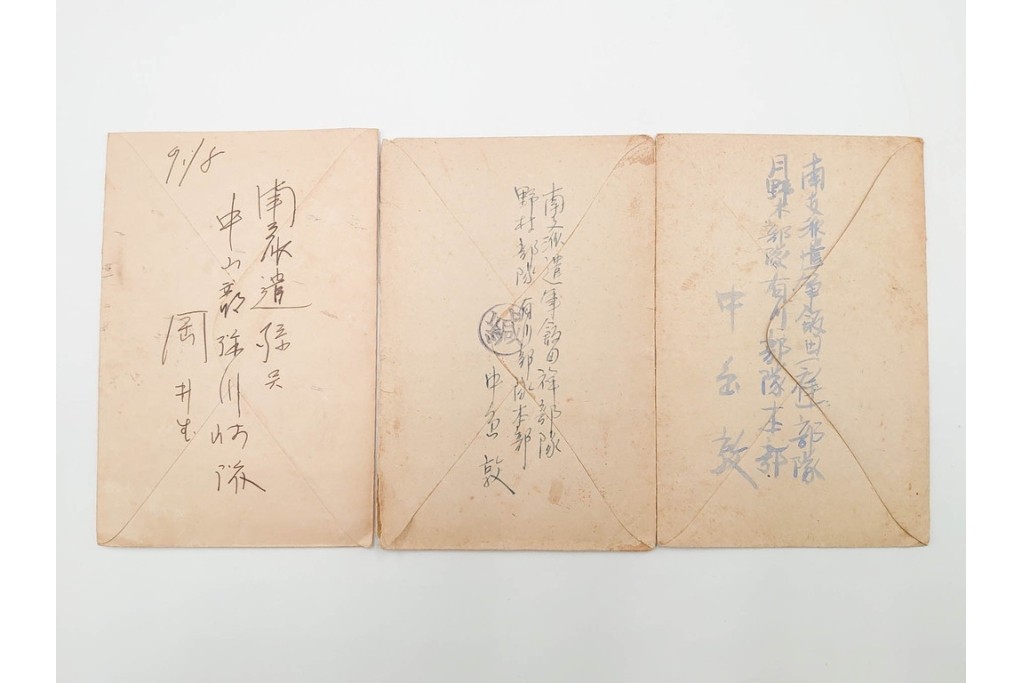 9/8
南派遣
中山部隊川崎隊
岡井生
南支派遣軍飯田祥部隊
野村部隊有川部隊本部
中 敦
南支派遣軍飯田(祥)部隊
月野木部隊有川部隊本部
中 敦